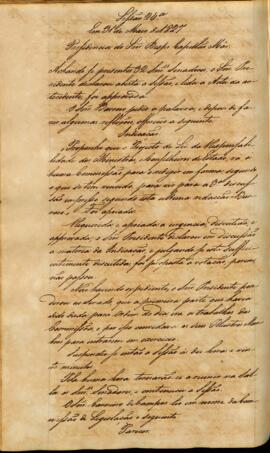 Sessão 24ª
Em 31 de Maio de 1827
Presidencia do Snr. Bispo Capellão Mór
Achando-se presentes 32 Snrs. Senadores, o Snr. Presi
dente declarou aberta a Sessão, e lida a Acta da an
tecedente foi approvada.
O Snr. Barroso pedio a palavra, e depois de fazer
algumas reflexões, offereceo a seguinte
Indicação
Proponho que o Projecto de Lei da Responsabi
lidade dos Ministros, e Conselheiros de Estado, vá a
huma Commissão para o redigir em forma segundo
o que se tem vencido, para vir para a 3ª discus
são impresso segundo esta ultima redacção =
Foi apoiado.
Requerida, e apoiada a urgencia, discutida, e
approvada, o Snr. Presidente declarou em discussão
a materia da Indicação, e julgando-se esta suffici
entemente discutida, foi posta á votação, porem
não passou.
Não havendo expediente, o Snr. Presidente
declarou que a primeira parte que havia
sido dada para Ordem do dia era a trabalhos das
Commissões, e por isso convidava os Illustres Mem
bros para entrarem em exercicio.
Suspendeo-se então a Sessão ás dez horas e vin
te minutos.
Pela huma hora tornarão-se a reunir na Sal
la os Snrs. Senadores, e continuou a Sessão.
O Snr. Carneiro de Campos leo em nome da Com
missão de Legislação o seguinte
Parecer